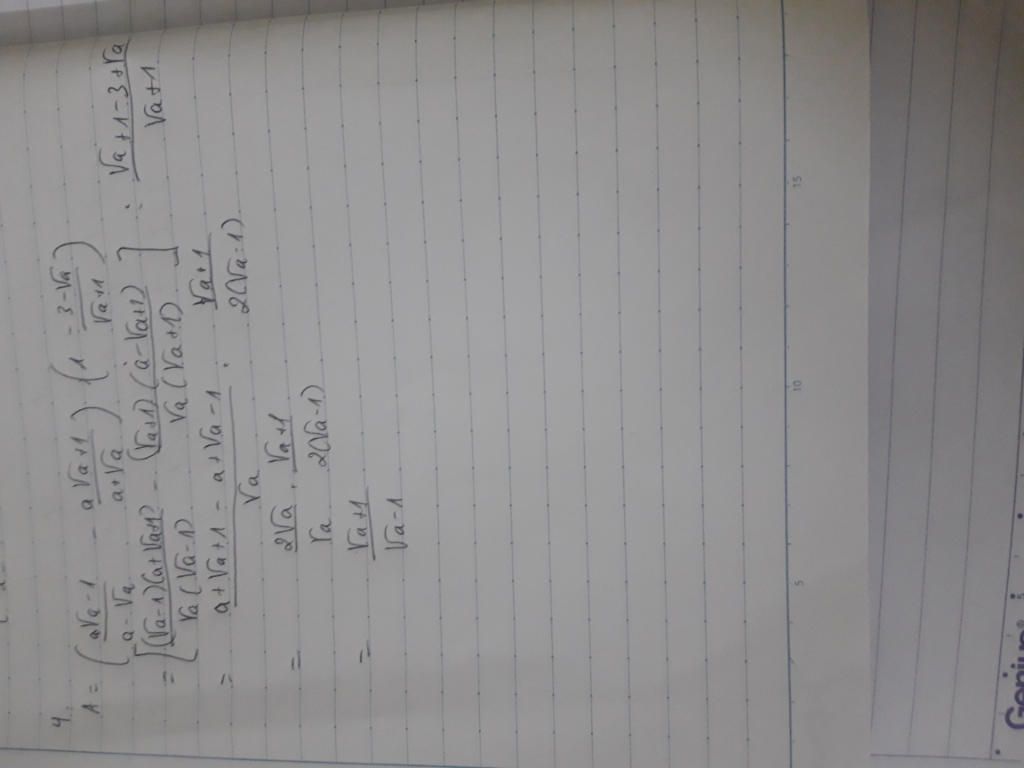 4.
A = (a√a-1/a-√a - a√a+1/a+√a) : (1 - 3-√a/√a+1)
= [(√a-1)(a+√a+1)/√a(√a-1) - (√a+1)(a-√a+1)/√a(√a+1)] : √a+1-3+√a/√a+1
= a+√a+1-a+√a-1/√a . √a+1/2(√a-1)
= 2√a/√a . √a+1/2(√a-1)
= √a+1/√a-1
5 10 15
Genius